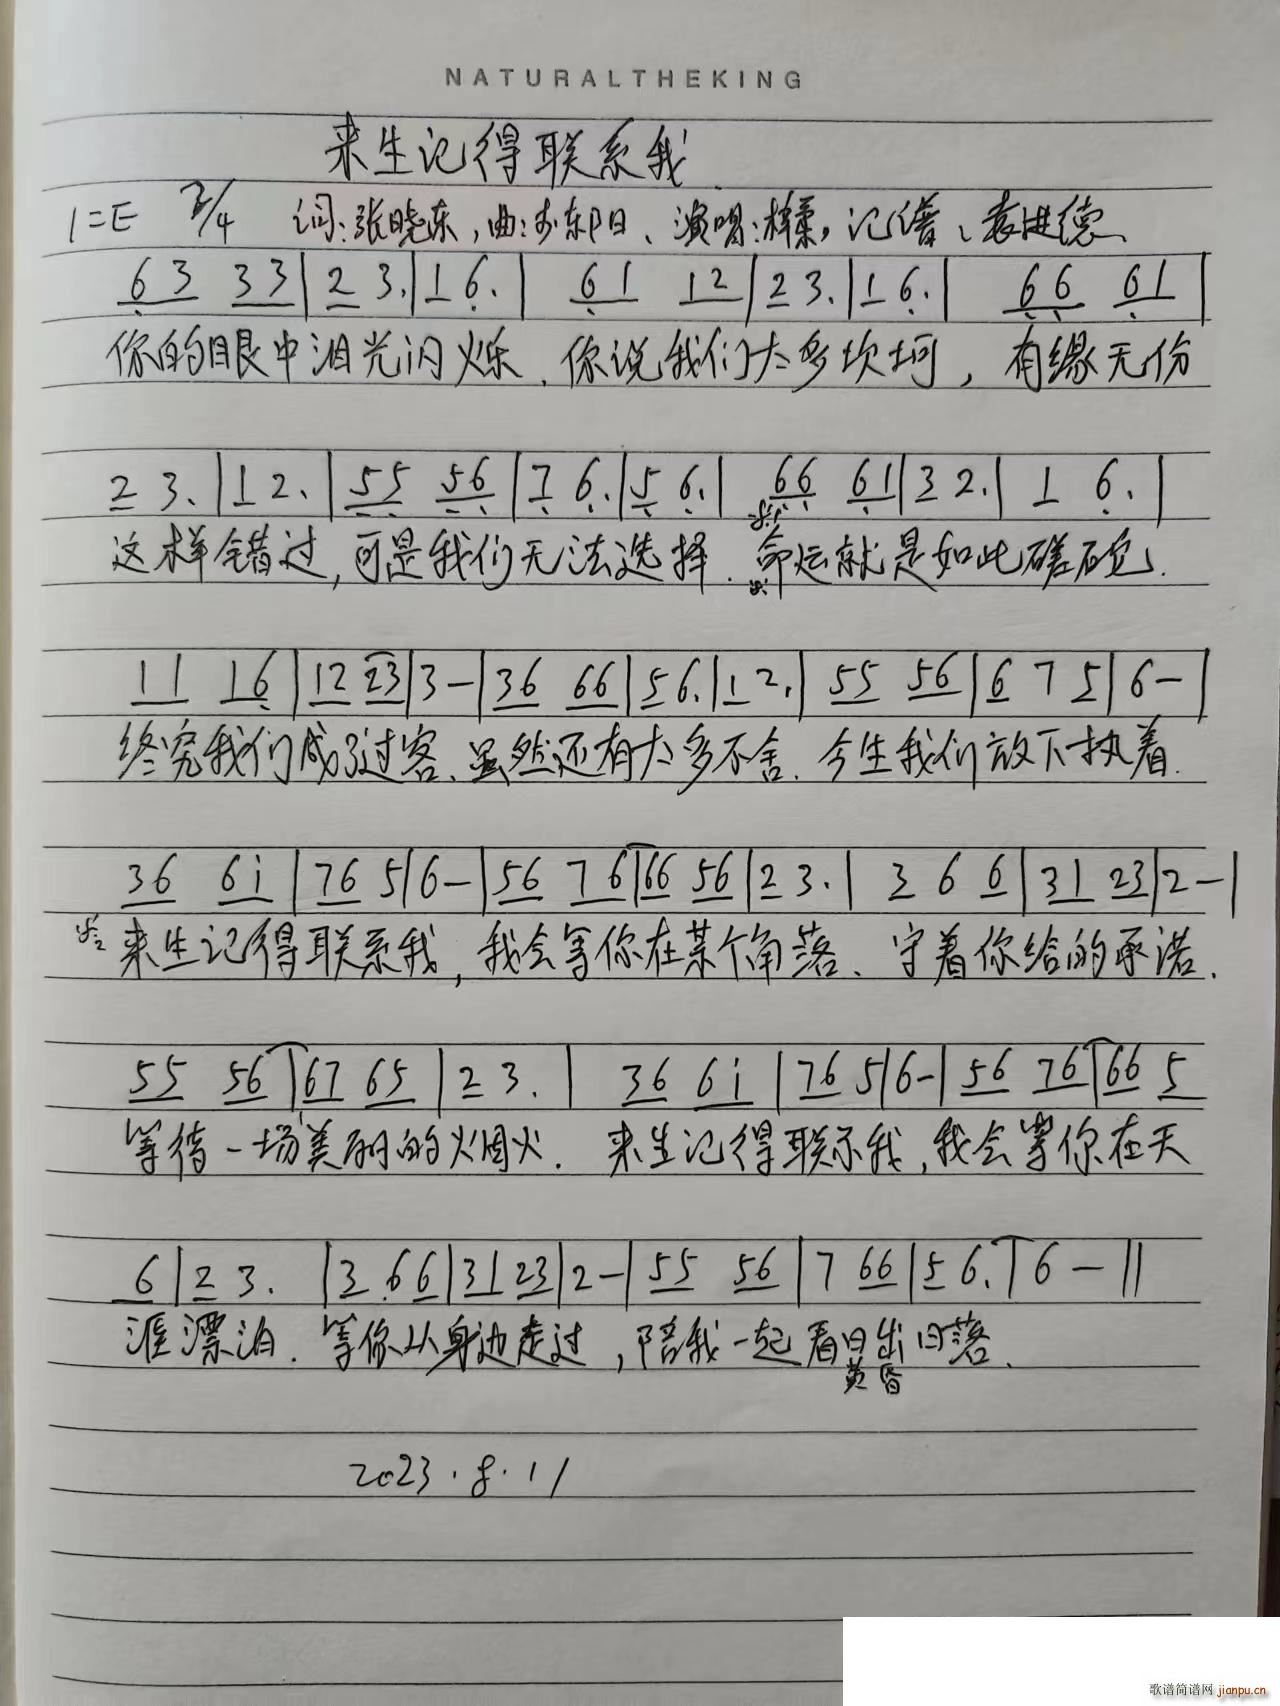 NATURALTHEKING
来生记得联系我
1=E 2/4 词:张晓东,曲: 演唱: 记谱、袁进德
63 33|2 3.|1 6.| 61 12|2 3.|1 6.| 66 61|
你的眼中泪光闪烁.你说我们太多坎坷,有缘无份
2 3.|1 2.|55 56|7 6.|5 6.| 66 61|3 2.|1 6.|
这样错过,可是我们无法选择.命运就是如此
11 16|12 23|3-|36 66|5 6.|1 2.|55 56|6 7 5|6-|
终究我们成了过客、虽然还有太多不舍.今生我们放下执着.
36 6i|76 5|6-|56 76|66 56|2 3.|3 6 6|31 23|2-|
来生记得联系我,我会等你在某个角落、守着你给的承诺.
55 56|67 65|2 3.|36 6i|76 5|6-|56 76|66 5
等待一场美丽的烟火.来生记得联系我,我会等你在天
6|2 3.|3.66|31 23|2-|55 56|7 66|5 6.|6-||
涯漂泊.等你从身边走过,陪我一起看日出日落.
黄昏
2023.8.11
歌谱简谱网 jianpu.cn